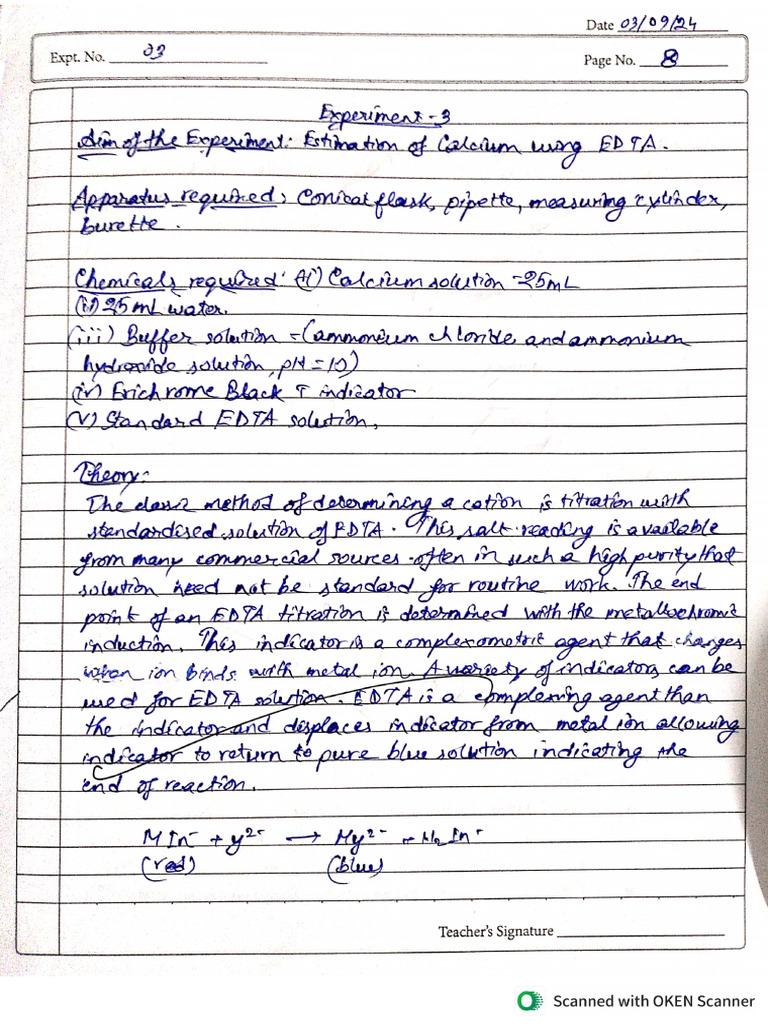 Date 03/09/24
Expt. No. 03
Page No. 8
Experiment-3
Aim of the Experiment: Estimation of Calcium using EDTA.
Apparatus required: Conical flask, pipette, measuring cylinder,
burette.
Chemicals required: (i) Calcium solution - 25mL
(ii) 25 mL water.
(iii) Buffer solution - (ammonium chloride and ammonium
hydroxide solution, pH = 10)
(iv) Erichrome Black T indicator
(v) Standard EDTA solution.
Theory:
The classic method of determining a cation is titration with
standardised solution of EDTA. This salt reading is available
from many commercial sources often in such a high purity that
solution need not be standard for routine work. The end
point of an EDTA titration is determined with the metallochromic
induction. This indicator is a complexometric agent that changes
when ion binds with metal ion. A variety of indicators can be
used for EDTA solution. EDTA is a complexing agent than
the indicator and displaces indicator from metal ion allowing
indicator to return to pure blue solution indicating the
end of reaction.
MIn⁻ + y²⁻ → My²⁻ + H₂In⁻
(red) (blue)
Teacher's Signature
Scanned with OKEN Scanner